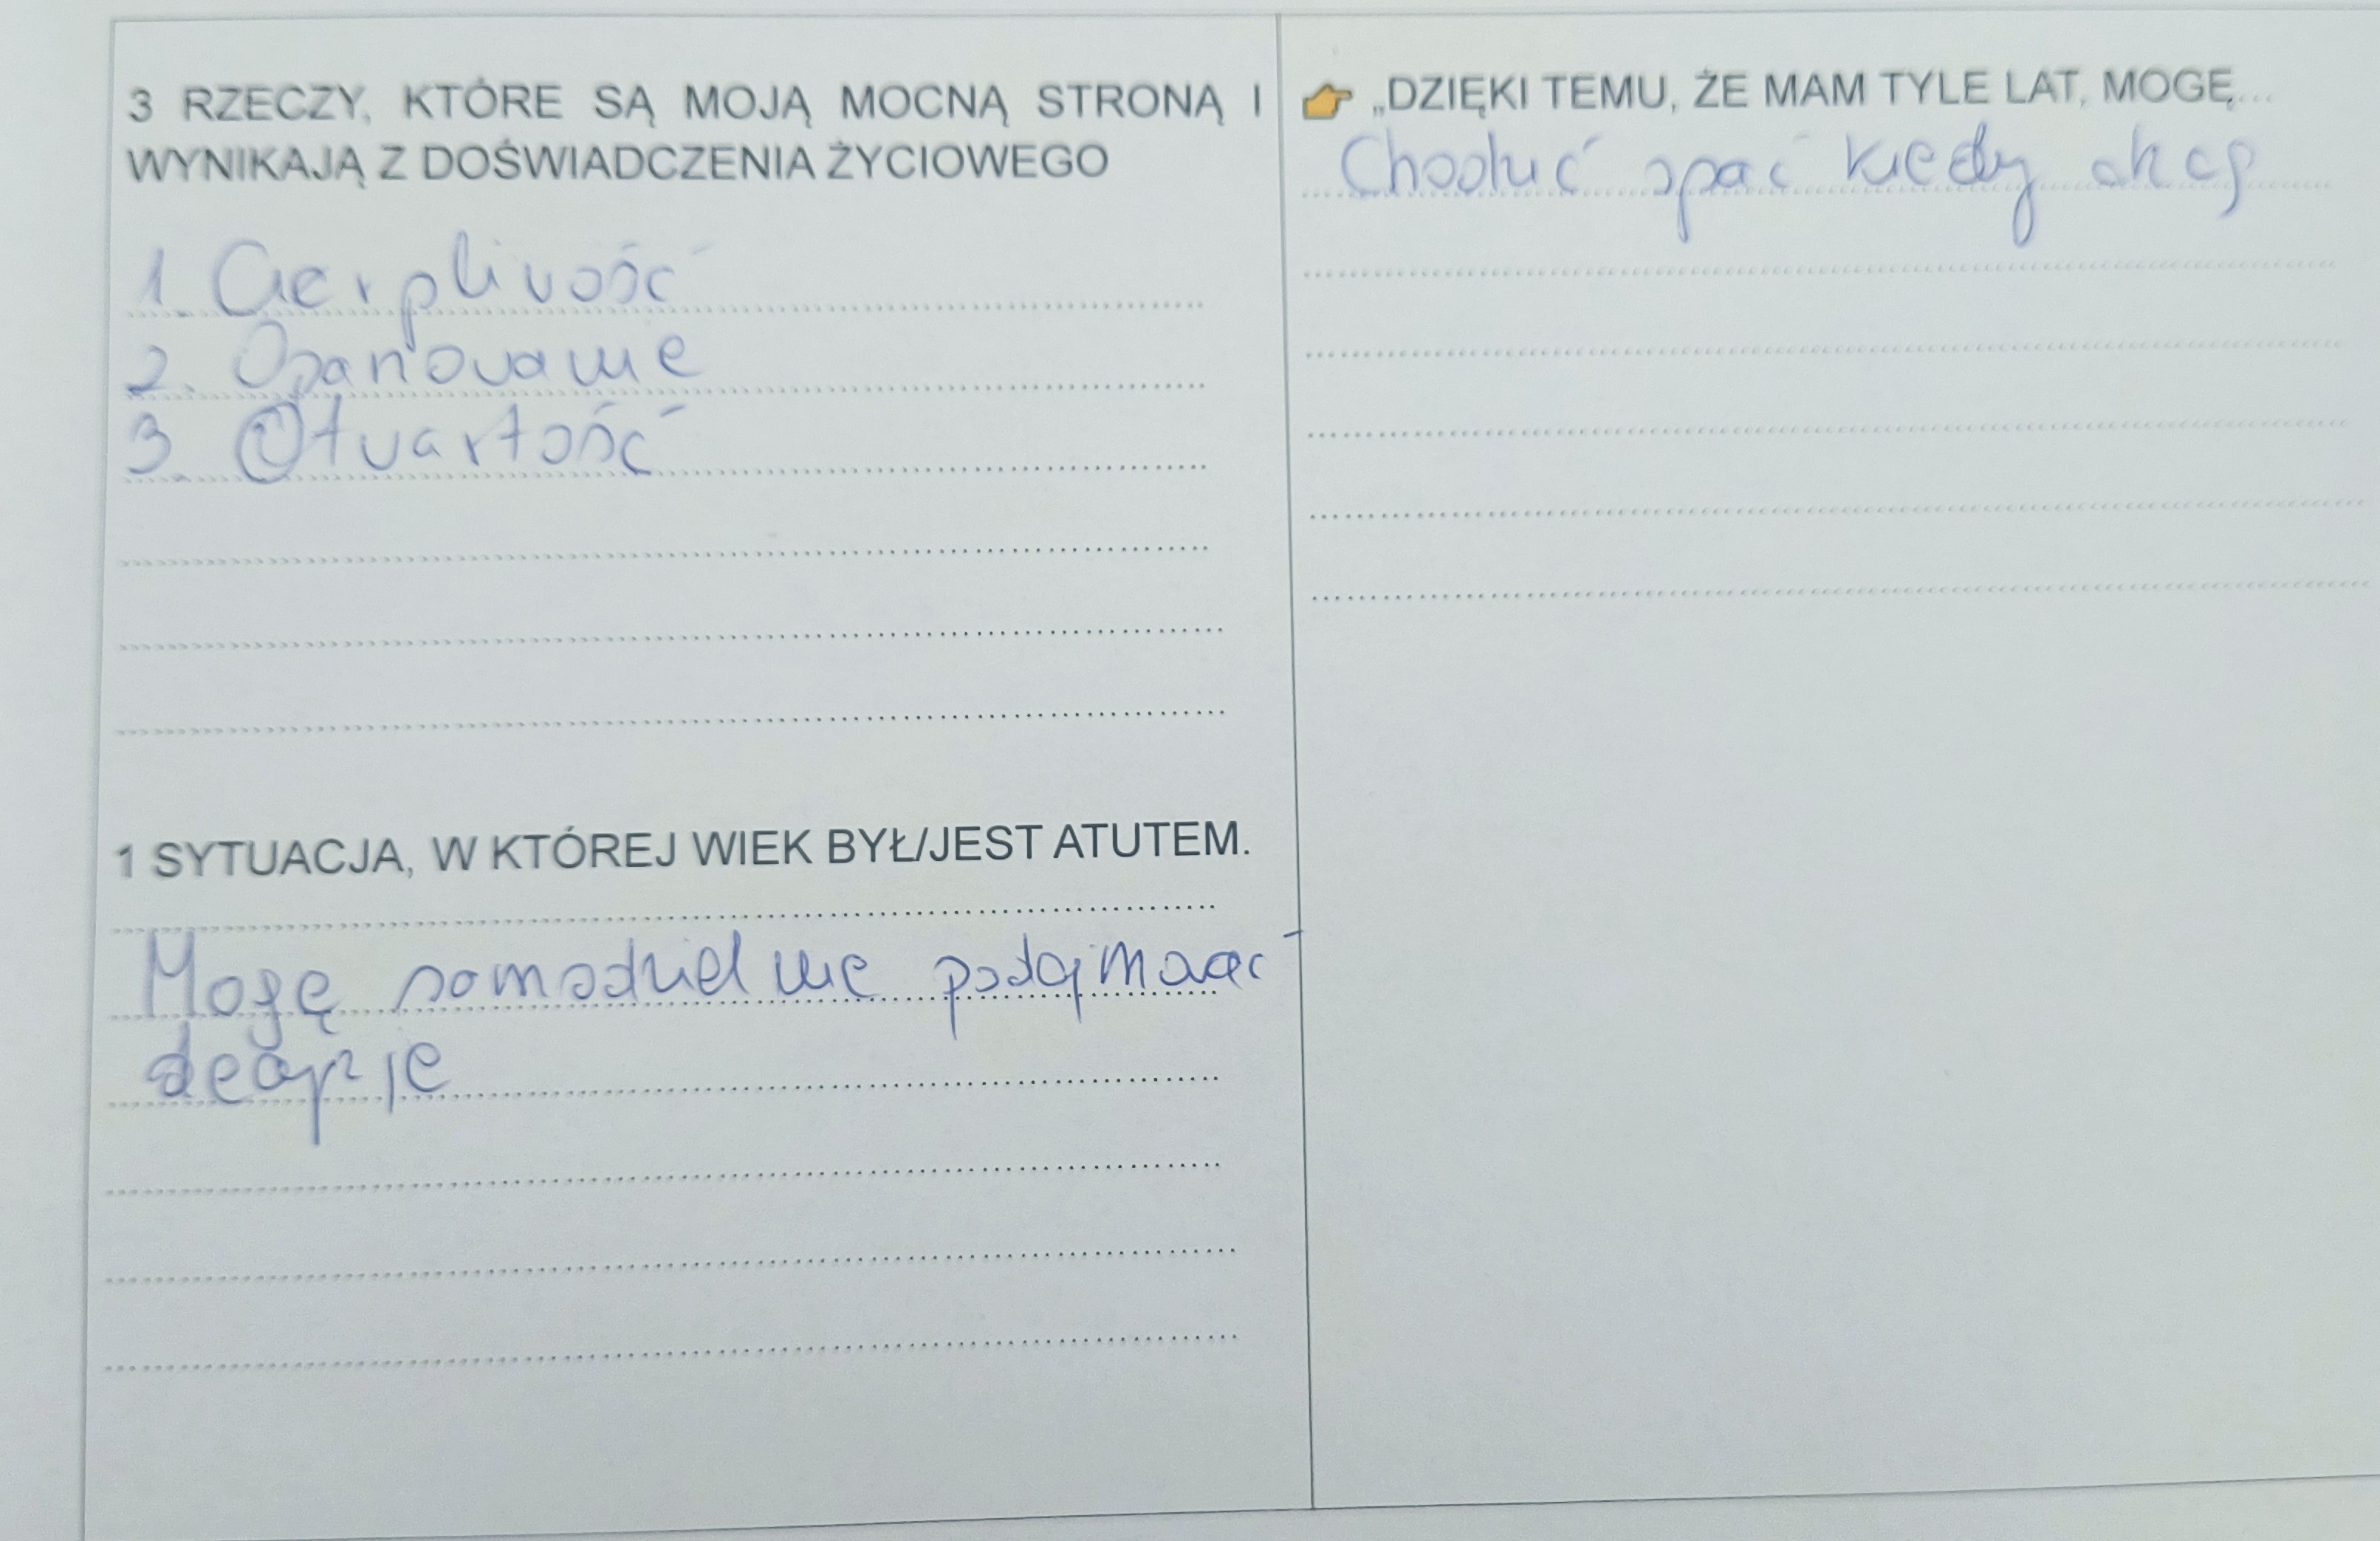 3 RZECZY, KTÓRE SĄ MOJĄ MOCNĄ STRONĄ I
WYNIKAJĄ Z DOŚWIADCZENIA ŻYCIOWEGO
1. Cierpliwość
2. Opanowanie
3. Otwartość
1 SYTUACJA, W KTÓREJ WIEK BYŁ/JEST ATUTEM.
Mogę samodzielnie podejmować
decyzje
👉 „DZIĘKI TEMU, ŻE MAM TYLE LAT, MOGĘ...
Chodzić spać kiedy chcę